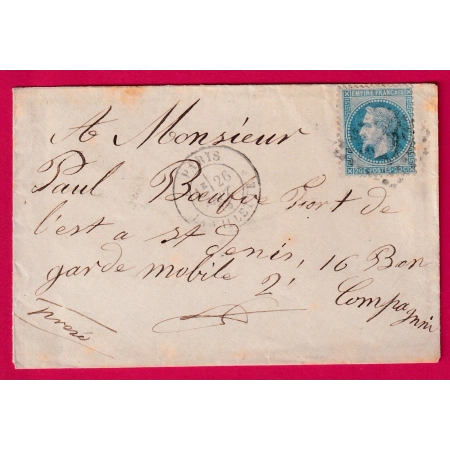 EMPIRE FRANÇAIS
A Monsieur
PARIS
26
LA VILLETTE
Paul Bœufve Fort de
l'est a st Denis,
garde mobile 16 Bon
2e Compagnie
pressé